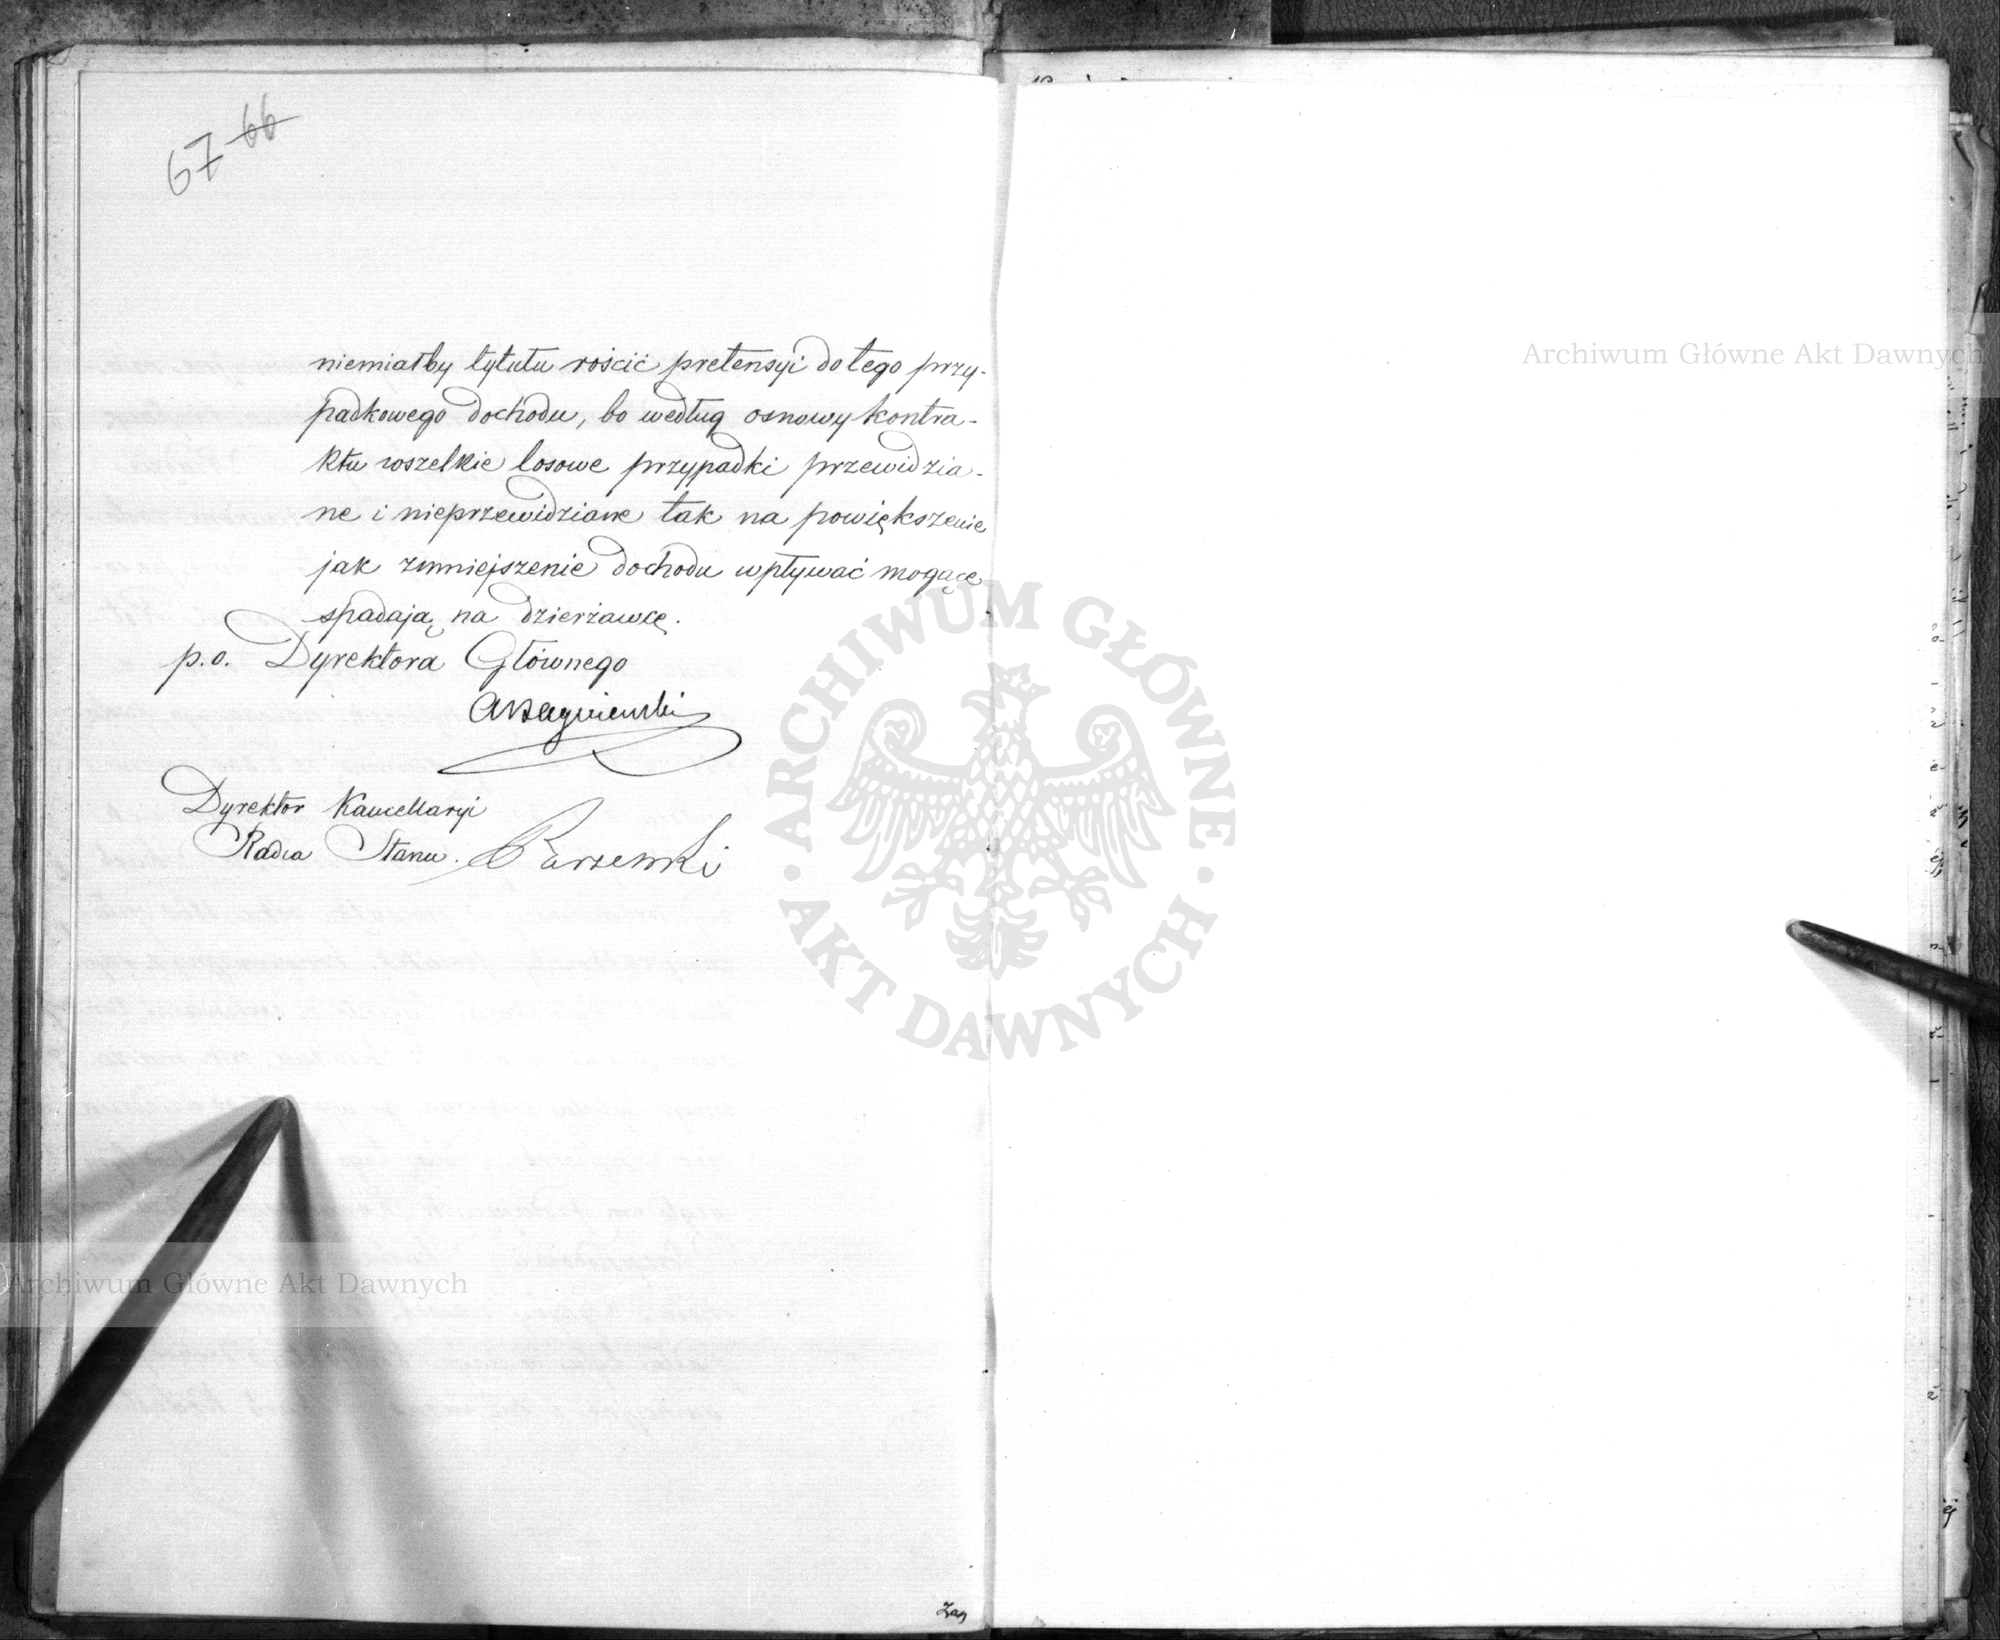 67 66
niemiałby tytułu rościć pretensyi do tego przy-
padkowego dochodu, bo według osnowy kontra-
ktu wszelkie losowe przypadki przewidzia-
ne i nieprzewidziane tak na powiększenie
jak zmniejszenie dochodu wpływać mogące
spadają na dzierżawcę.
p.o. Dyrektora Głównego
Dyrektor Kancellaryi
Radca Stanu.
Archiwum Główne Akt Dawnych
ARCHIWUM GŁÓWNE
AKT DAWNYCH
Archiwum Główne Akt Dawnych